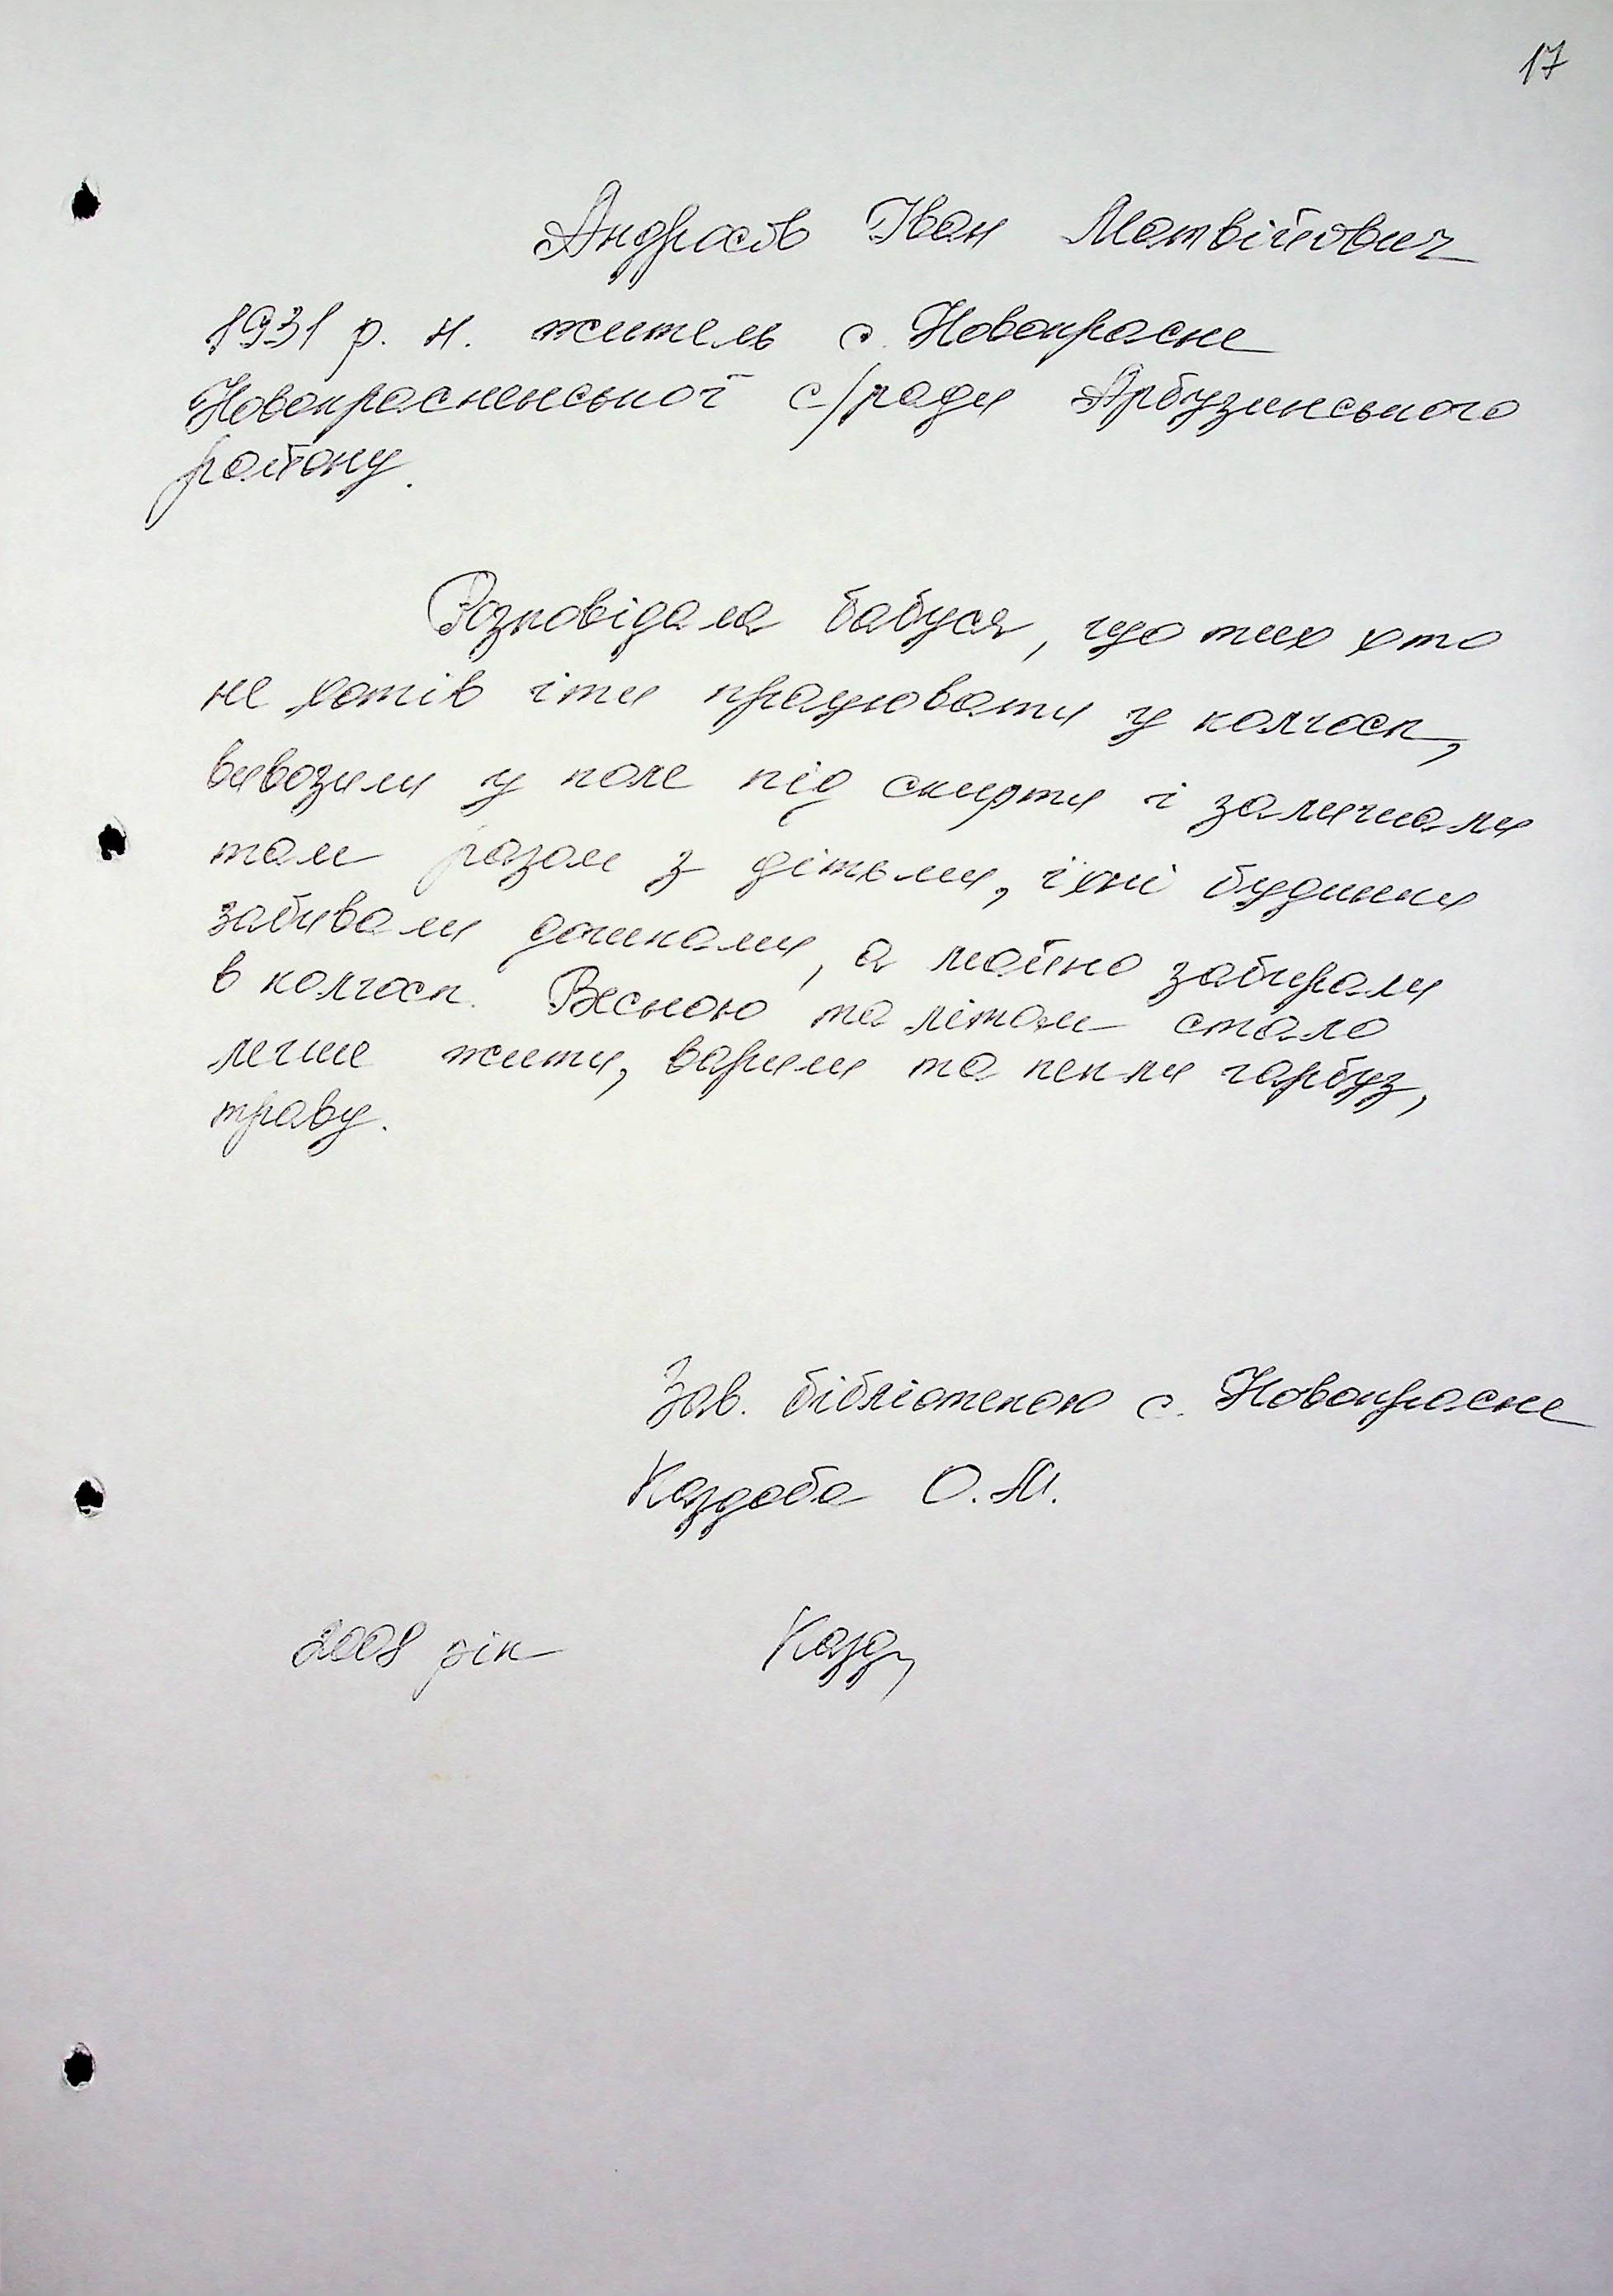 17
Андрасів Іван Матвійович
1931 р. н. житель с. Новокрасне
Новокрасненської с/ради Арбузинського
району.
Розповідала бабуся, що тих хто
не хотів іти працювати у колгосп,
вивозили у поле під скирти і залишали
там разом з дітьми, їхні будинки
забивали дошками, а майно забирали
в колгосп. Весною та літом стало
легше жити, варили та пекли гарбуз,
траву.
Зав. бібліотекою с. Новокрасне
Каздоба О. М.
2008 рік